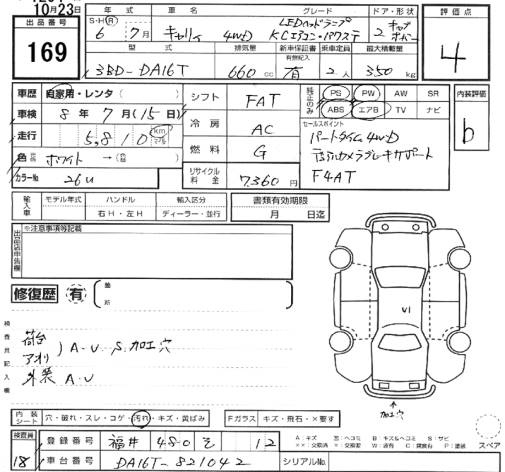 10月23日
出品番号
169
年式
S・H・R
6年 7月
車名
キャリイ 4WD
グレード
LEDヘッドランプ
KCエアコン・パワステ
ドア・形状
2
型式
3BD-DA16T
排気量
660cc
新車保証書
有無記入
有
乗車定員
2人
最大積載量
350kg
評価点
4
車歴
自家用・レンタ( )
車検
8年 7月(15日)
走行
5,810
km
マイル
色
ホワイト→( )
カラーNo
26U
シフト
FAT
冷房
AC
燃料
G
リサイクル料金
7,360円
純正のみ
PS PW AW SR
ABS エアB TV ナビ
セールスポイント
パートタイム4WD
カメラブレーキサポート
F4AT
内装評価
b
輸入車
モデル年式
年
ハンドル
右H・左H
輸入区分
ディーラー・並行
書類有効期限
月 日迄
出品店申告欄
※注意事項等記載
修復歴 有
箇所
検査員記入欄
荷台
アオリ
)A・U S.加工穴
外装 A・U
V1
加工穴
内装シート
穴・破れ・スレ・コゲ・汚れ・キズ・黄ばみ
Fガラス キズ・飛石・×要す
検査員
18
登録番号
福井 480 そ 12
車台番号
DA16T-821042
シリアルNo.
A:キズ U:ヘコミ B:キズ&ヘコミ S:サビ
スペア